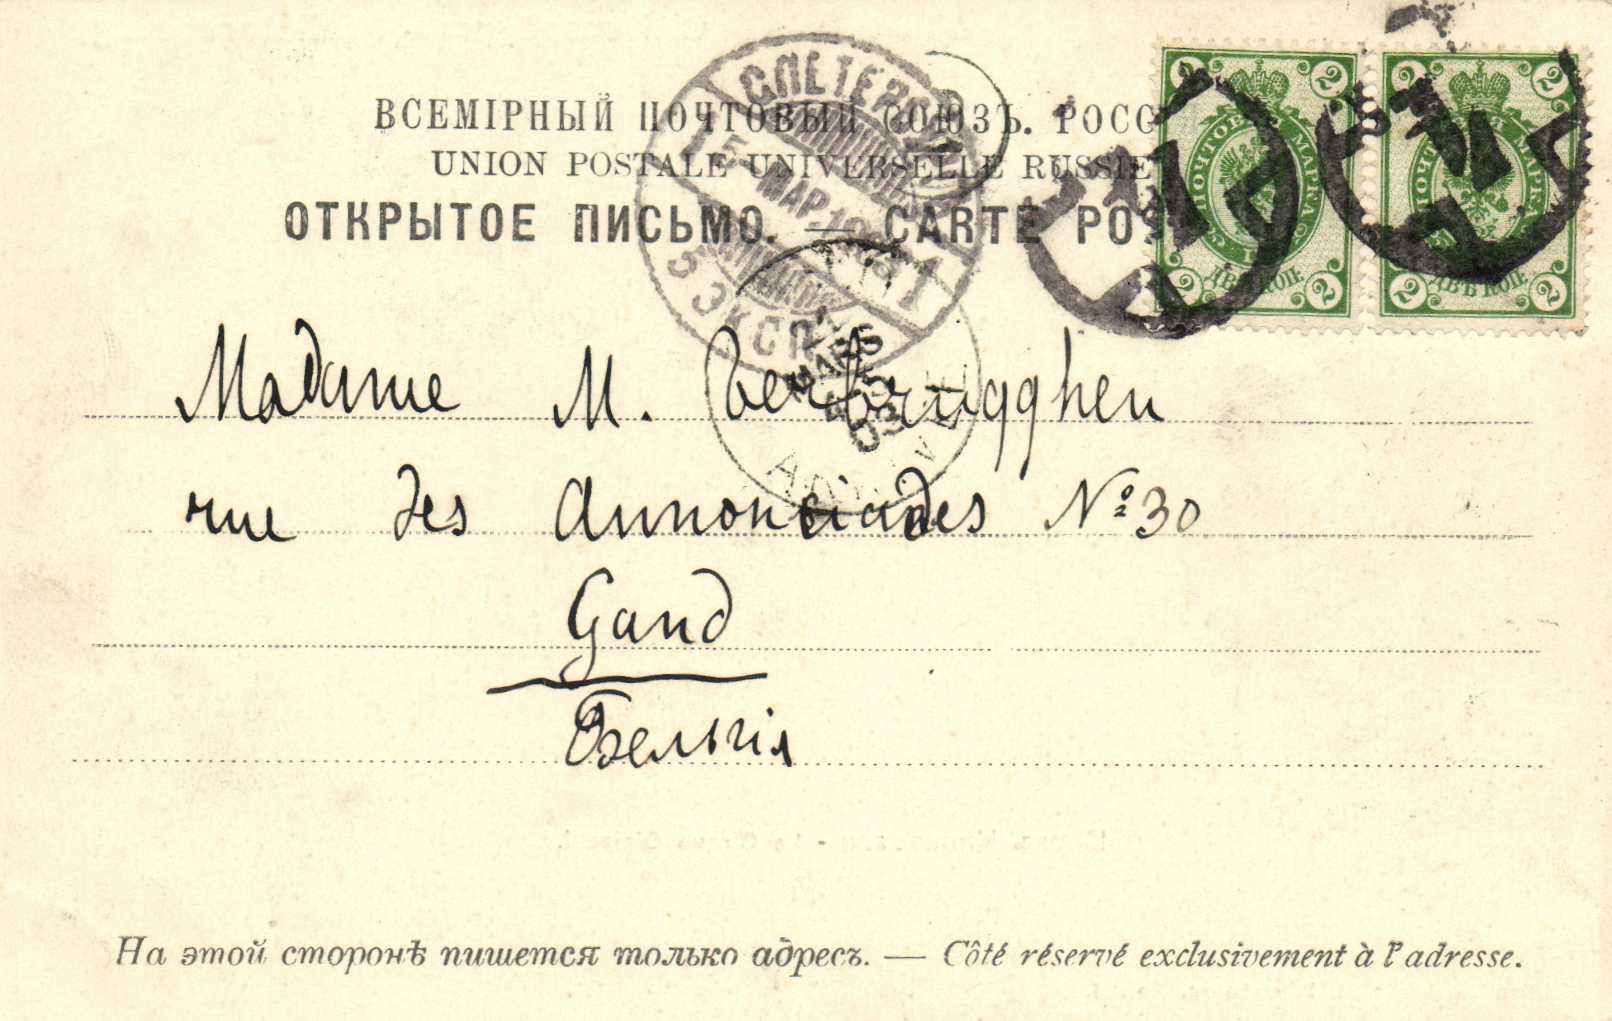 ВСЕМІРНЫЙ ПОЧТОВЫЙ СОЮЗЪ. РОСС
UNION POSTALE UNIVERSELLE RUSSIE
ОТКРЫТОЕ ПИСЬМО. — CARTE POS
2 2 2 2
ПОЧТОВАЯ МАРКА
ДВѢ КОП.
2 2 2 2
МАРКА
ДВѢ КОП.
СПЕТЕР
5 МАР.190
1
5 ЭКСП
MARS
03
Madame M. Verbrugghen
rue des Annonciades Nº 30
Gand
Бельгія
На этой сторонѣ пишется только адресъ. — Côté réservé exclusivement à l'adresse.